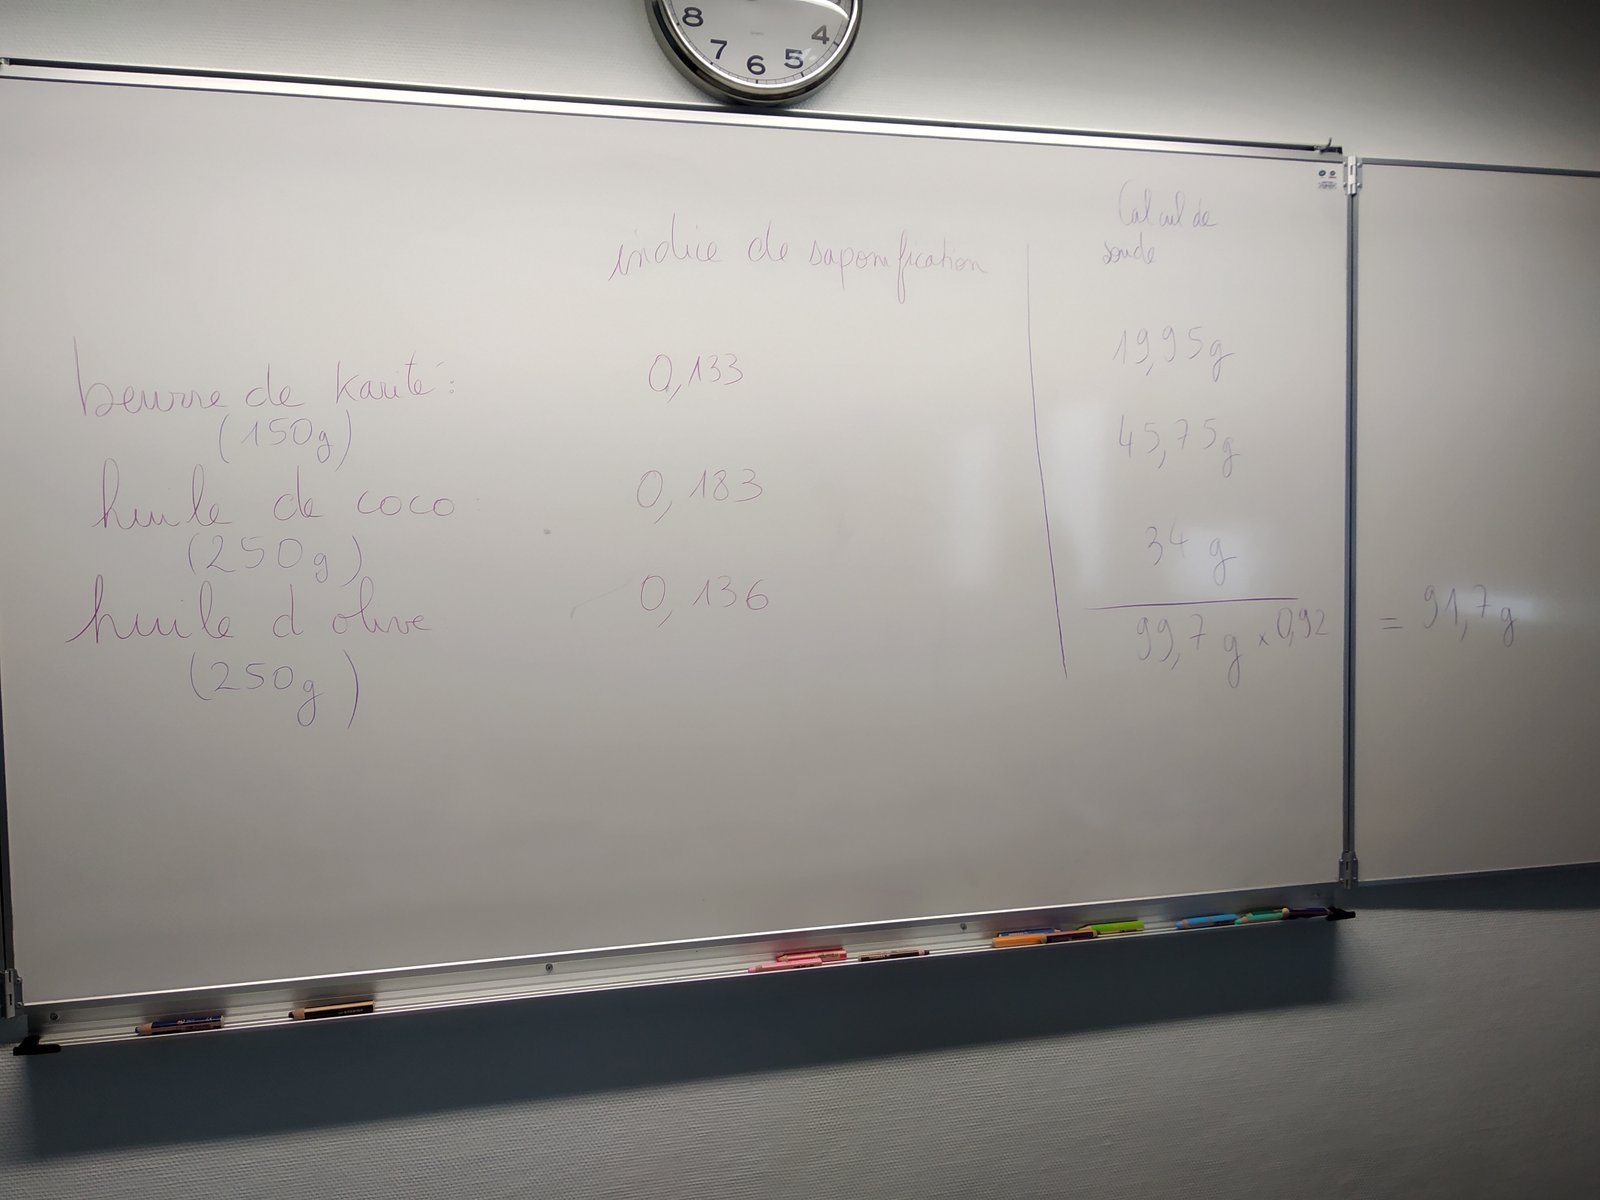 8 7 6 5 4
Calcul de
soude
indice de saponification
beurre de karité : 0,133 19,95g
(150g)
huile de coco : 0,183 45,75g
(250g)
huile d olive 0,136 34 g
(250g)
99,7 g x 0,92 = 91,7 g